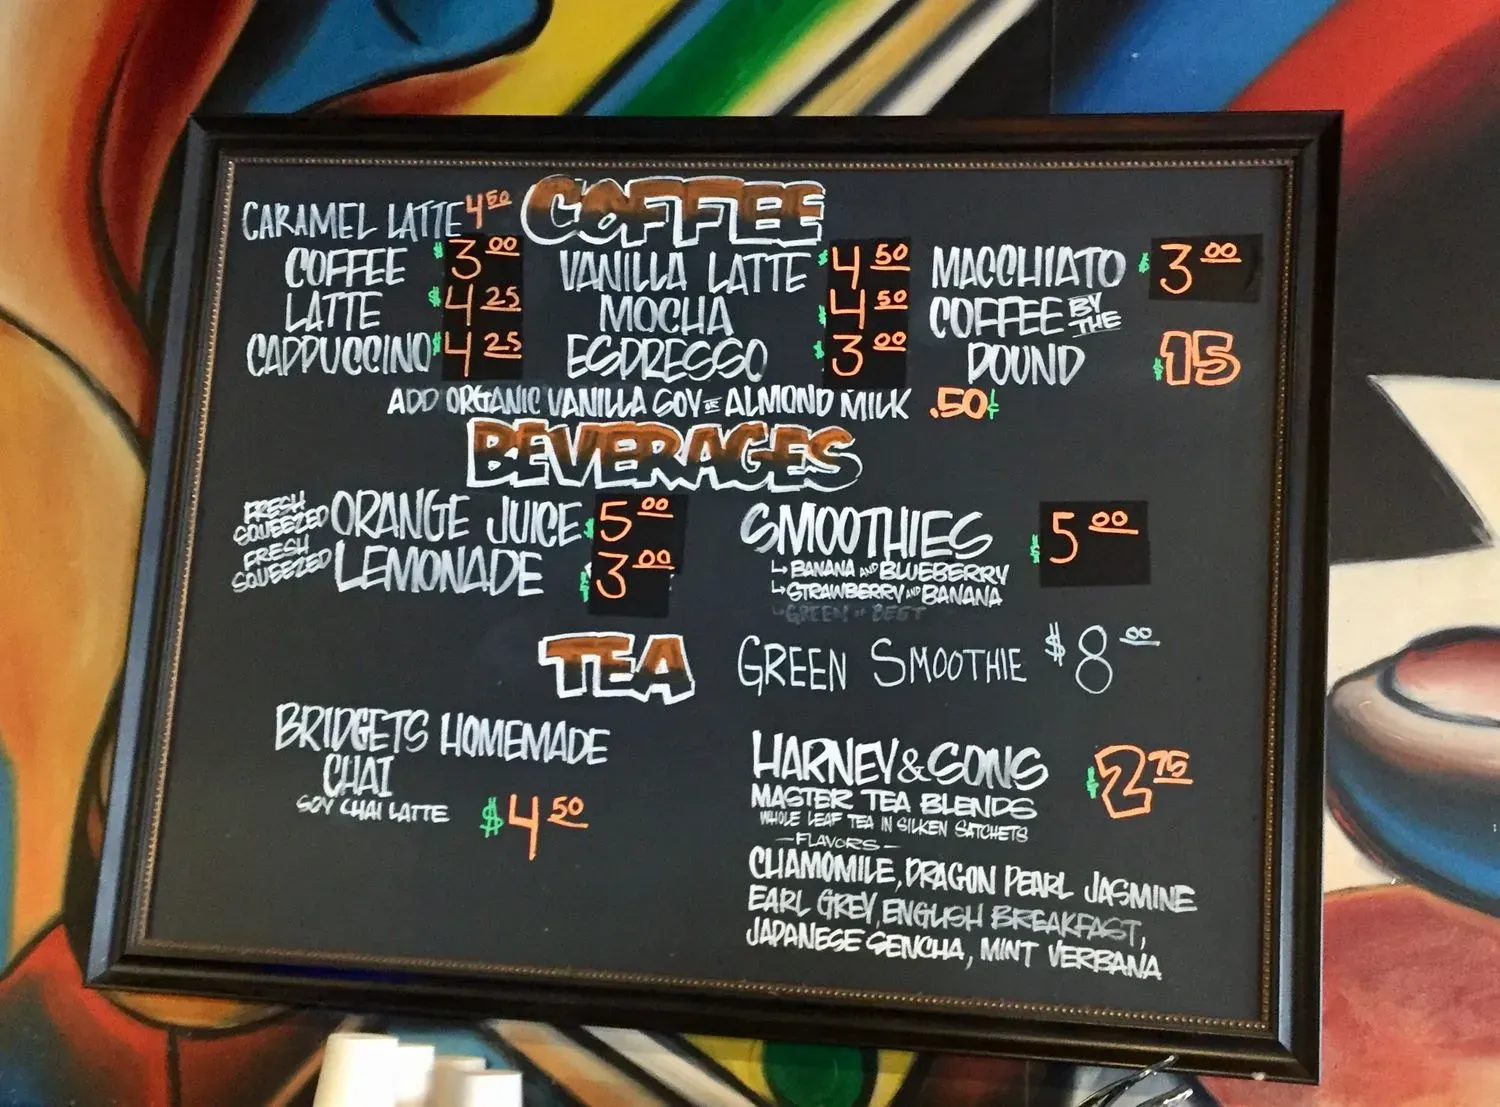 CARAMEL LATTE 4.50
COFFEE
COFFEE $3.00
LATTE $4.25
CAPPUCCINO $4.25
VANILLA LATTE $4.50
MOCHA $4.50
ESPRESSO $3.00
MACCHIATO $3.00
COFFEE BY THE
POUND $15
ADD ORGANIC VANILLA SOY OR ALMOND MILK .50¢
BEVERAGES
FRESH SQUEEZED ORANGE JUICE $5.00
FRESH SQUEEZED LEMONADE $3.00
SMOOTHIES $5.00
↳ BANANA AND BLUEBERRY
↳ STRAWBERRY AND BANANA
↳ GREEN OR BEET
GREEN SMOOTHIE $8.00
TEA
BRIDGETS HOMEMADE
CHAI
SOY CHAI LATTE $4.50
HARNEY & SONS $2.75
MASTER TEA BLENDS
WHOLE LEAF TEA IN SILKEN SATCHETS
- FLAVORS -
CHAMOMILE, DRAGON PEARL JASMINE
EARL GREY, ENGLISH BREAKFAST,
JAPANESE SENCHA, MINT VERBANA